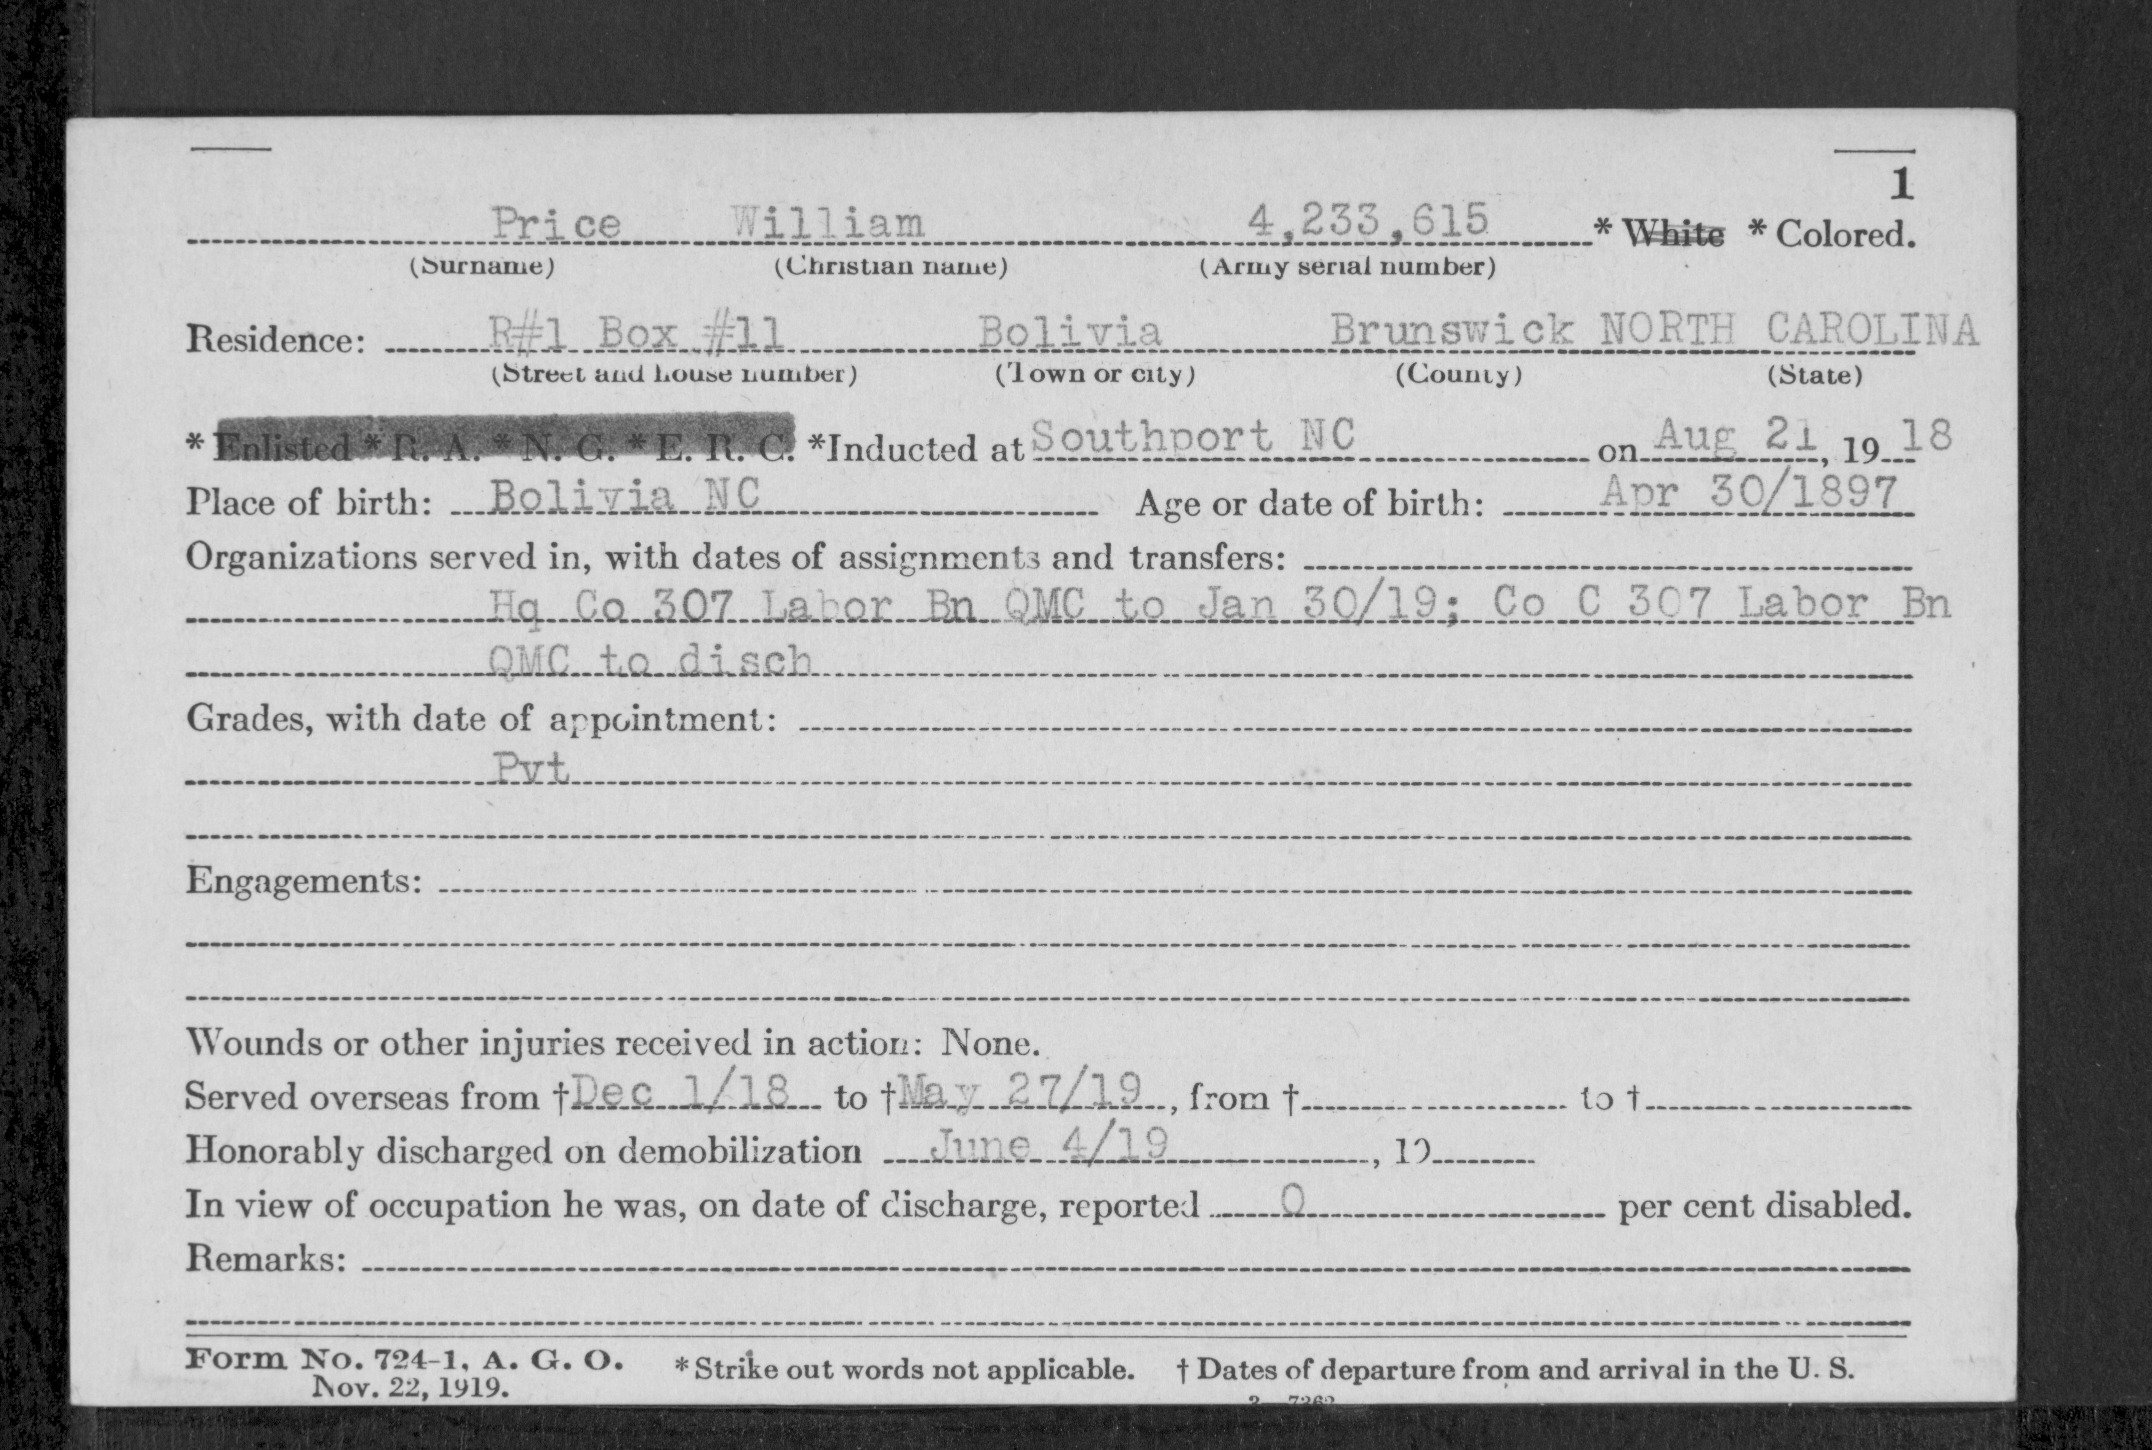 1
Price William 4,233,615 * White * Colored.
(Surname) (Christian name) (Army serial number)
Residence: R#1 Box #11 Bolivia Brunswick NORTH CAROLINA
(Street and house number) (Town or city) (County) (State)
* Enlisted * R. A. * N. G. * E. R. C. *Inducted at Southport NC on Aug 21, 19 18
Place of birth: Bolivia NC Age or date of birth: Apr 30/1897
Organizations served in, with dates of assignments and transfers:
Hq Co 307 Labor Bn QMC to Jan 30/19; Co C 307 Labor Bn
QMC to disch
Grades, with date of appointment:
Pvt
Engagements:
Wounds or other injuries received in action: None.
Served overseas from †Dec 1/18 to †May 27/19, from † to †
Honorably discharged on demobilization June 4/19, 19
In view of occupation he was, on date of discharge, reported 0 per cent disabled.
Remarks:
Form No. 724-1, A. G. O. * Strike out words not applicable. † Dates of departure from and arrival in the U. S.
Nov. 22, 1919.